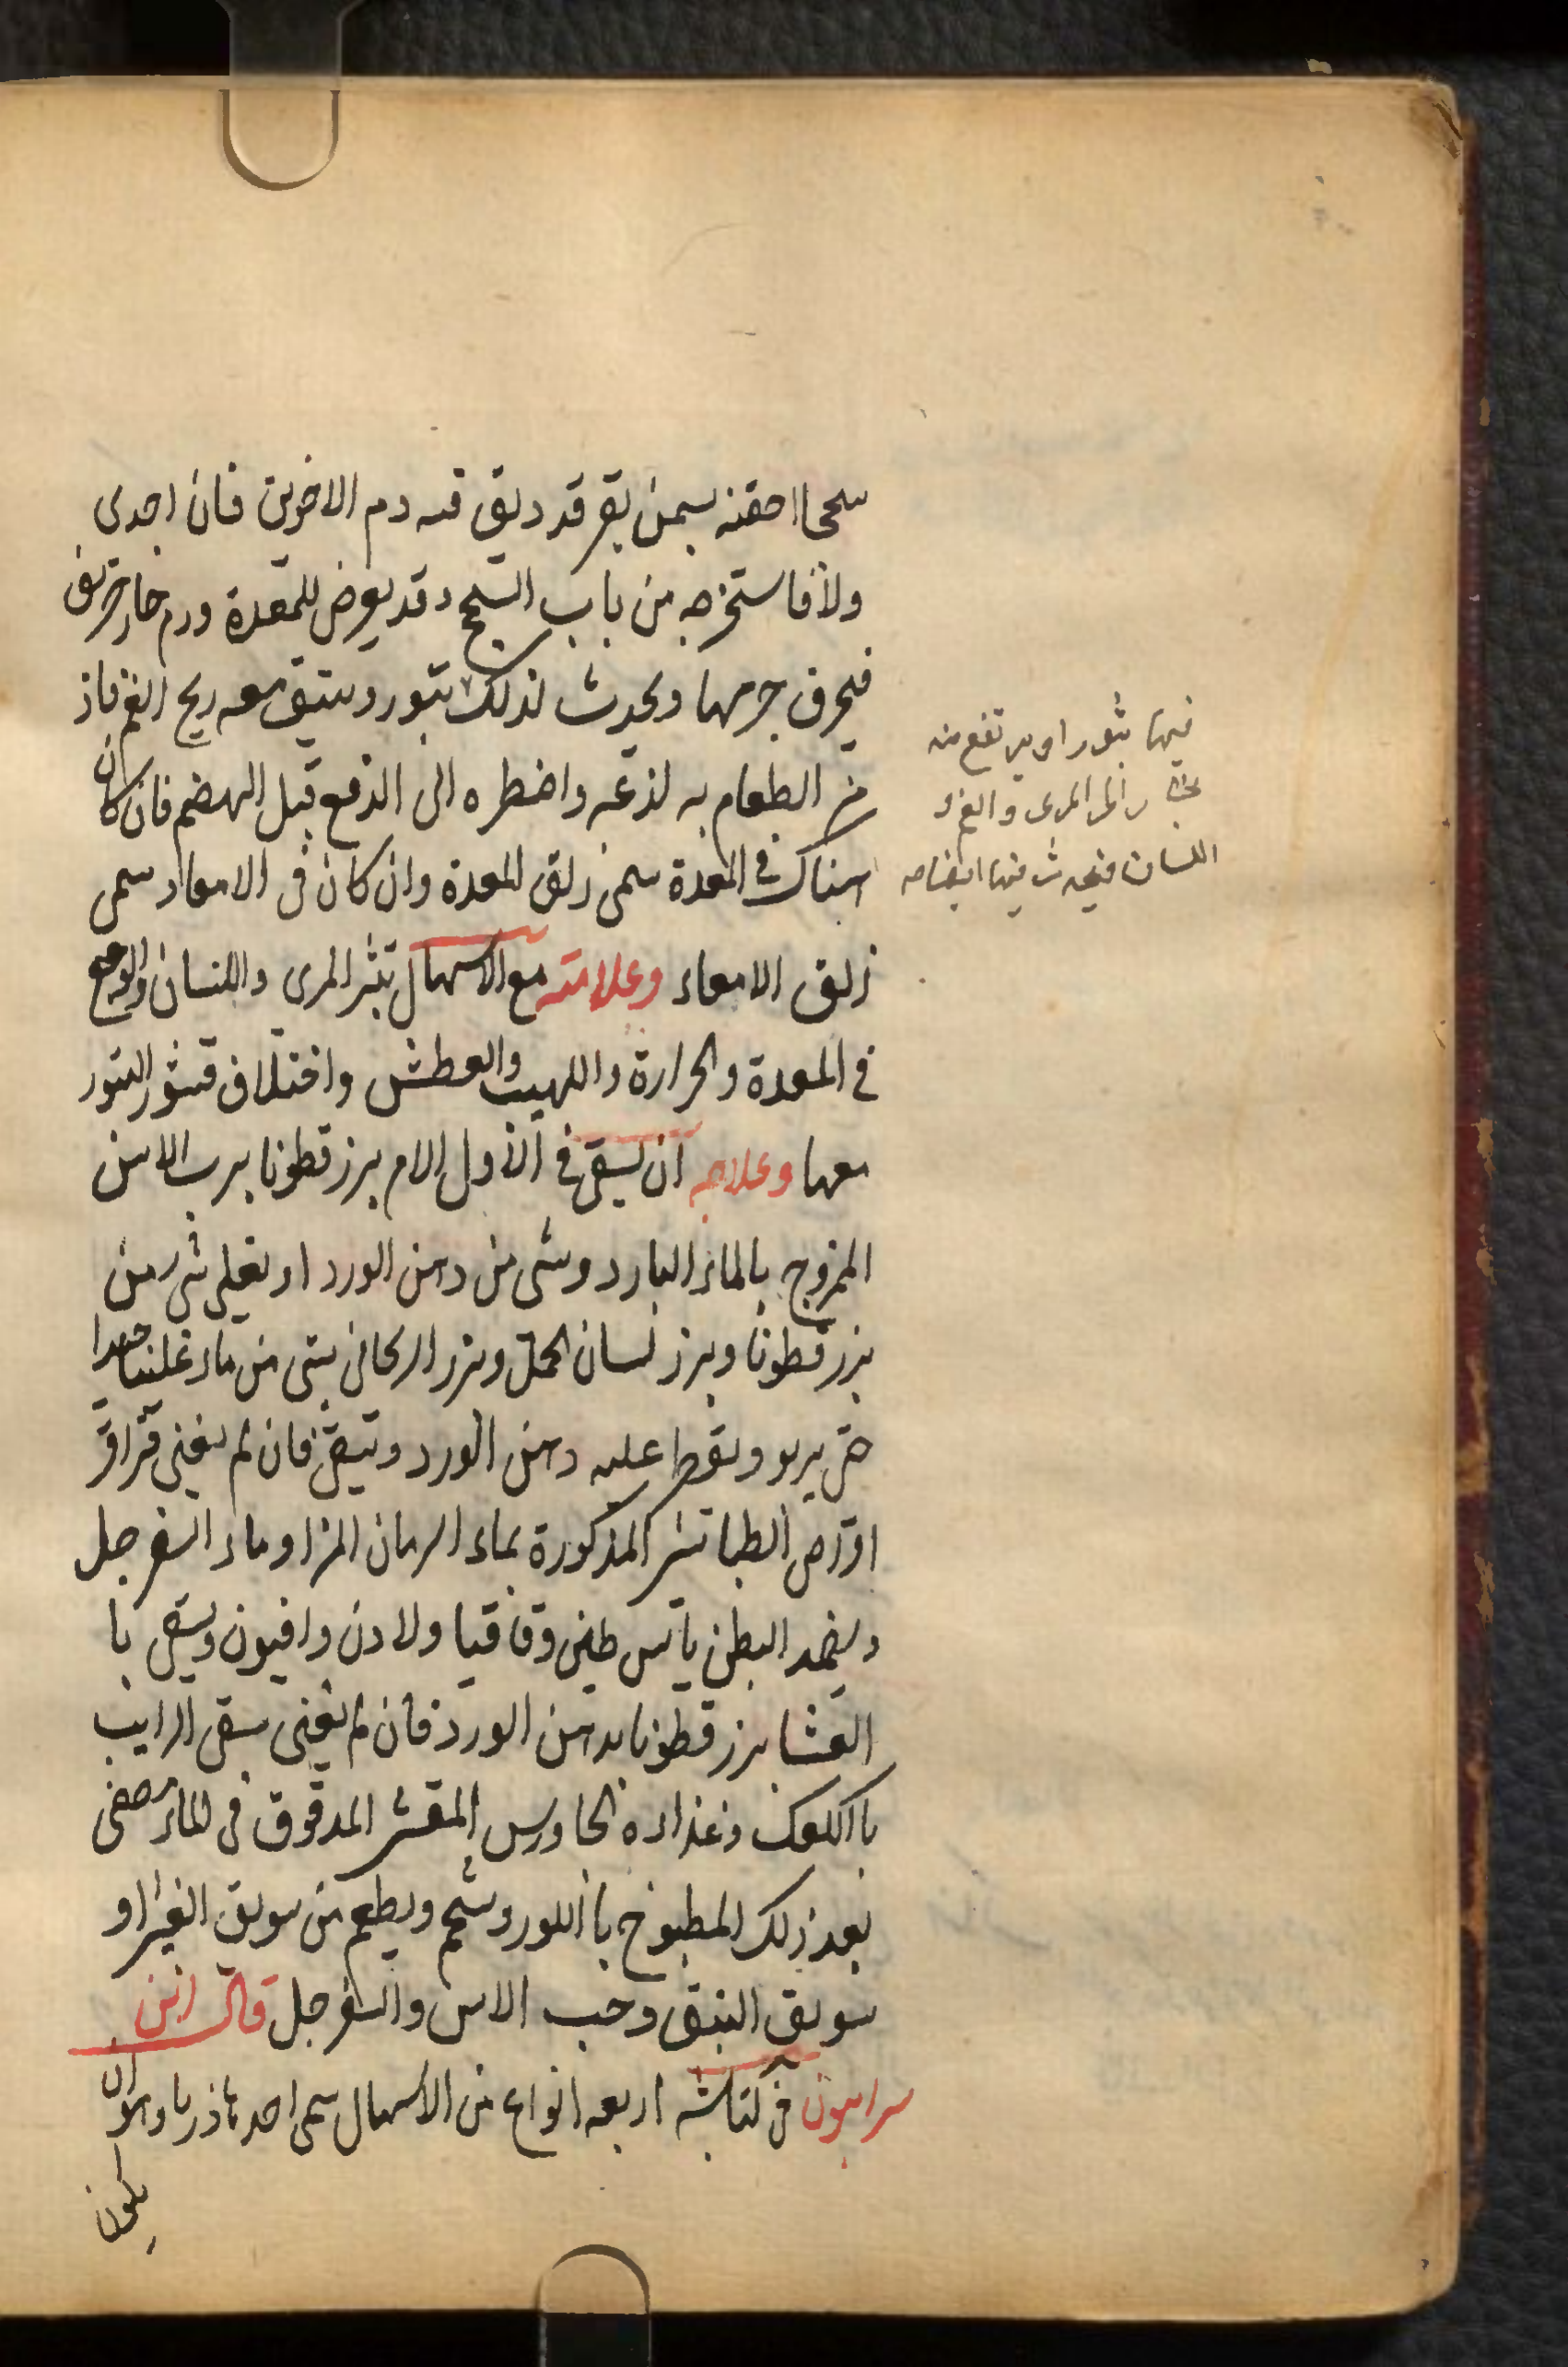 سحجا احقنه بسمن بقر قد ديق فيه دم الاخوين فان اجدى
والا فاستخرجه من باب السحج وقد يعرض للمعدة ورم حار
فيحرق جرمها ويحدث لذلك بثور وينتق معه ريح الفم فاذا
مر الطعام به لذعه واضطره الى الدفع قبل الهضم فان كان
هناك في المعدة سمى زلق المعدة وان كان في الامعاء سمى
زلق الامعاء وعلامته مع الاسهال بثر المرى واللسان والوجع
في المعدة والحرارة واللهيب والعطش واختلاف قشور البثور
معها وعلاجه ان يسقى في الاول الامر بزر قطونا برب الاس
الممزوج بالماء البارد وشى من دهن الورد او يغلى شى من
بزر قطونا وبزر لسان الحمل وبزر الريحان بشى من ماء غليا جيدا
حتى يربو ويقطر عليه دهن الورد ويسقى فان لم يغنى
اقراص الطباشير المذكورة بماء الرمان المز او ماء السفرجل
ويضمد البطن بآس طين وقاقيا ولادن وافيون ويسقى با
العشا بزر قطونا بدهن الورد فان لم يغنى يسقى الرايب
باالكعك وغذاءه الجاورس المقشر المدقوق في الماء مصفى
بعد ذلك المطبوخ باللوز وشحم ويطعم من سويق الغبيرا او
سويق النبق وحب الاس والسفرجل قال ابن
سرابيون في كناشه اربعه انواع من الاسهال سمى احدها ذربا وهو ان
يكون
فيها بثور او يرتفع منه
بخار الى المرى والفم و
اللسان فيحدث فيها ايضا